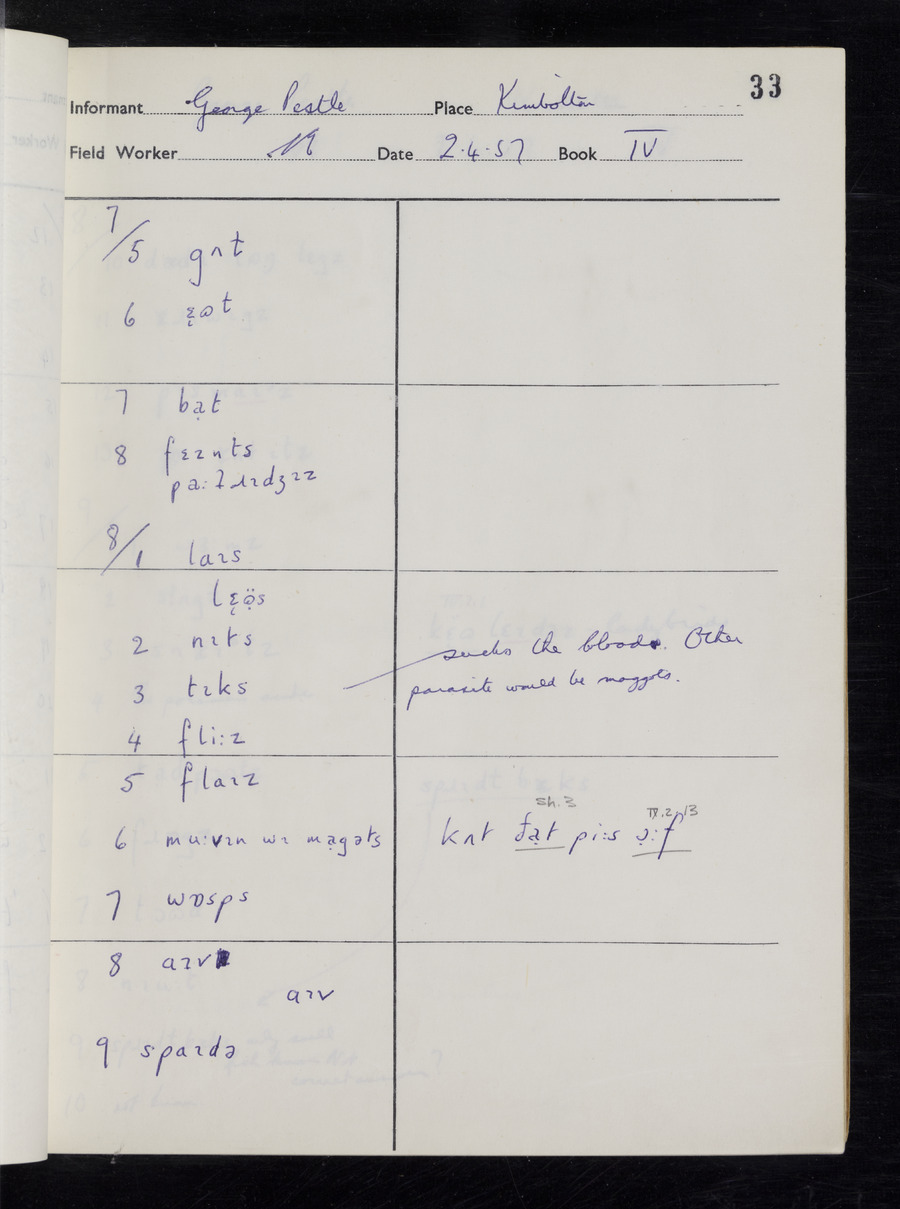 33
Informant George Pestle Place Kimbolton
Field Worker Date 2.4.57 Book IV
7/5 gʌt
6 ɛ̣ɷt
7 bạt
8 fɛɪɹɪts
8/1 laɪs
lɛ̣ɷ̈s
2 nɪts
3 tɪks sucks the blood. Other
parasite would be maggots.
4 fli:z
5 flaɪz
6 mu:vɪn wɪ mạgəts kʌt ðạt pi:s ɔ̣:f
sh.3 IV.2.13
7 wɒsps
8 aɪv
aɪv
9 spaɪdə